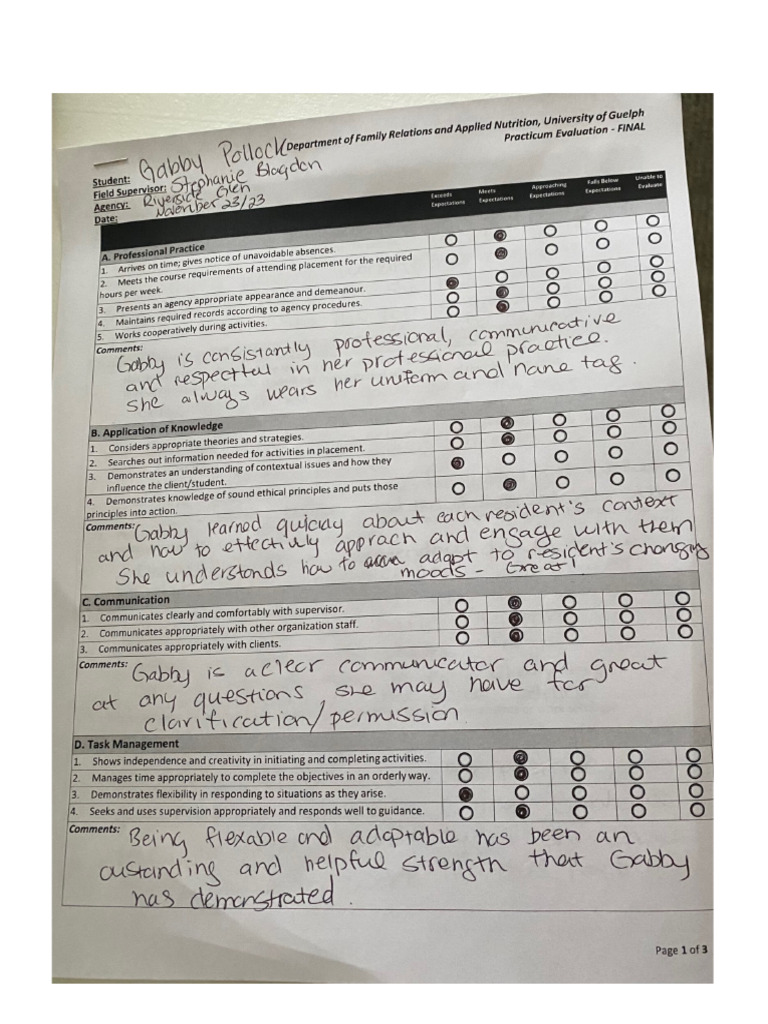 Department of Family Relations and Applied Nutrition, University of Guelph
Practicum Evaluation - FINAL
Student: Gabby Pollock
Field Supervisor: Stephanie Blagdon
Agency: Riverside Glen
Date: November 23/23
Exceeds Expectations Meets Expectations Approaching Expectations Falls Below Expectations Unable to Evaluate
A. Professional Practice
1. Arrives on time; gives notice of unavoidable absences.
2. Meets the course requirements of attending placement for the required
hours per week.
3. Presents an agency appropriate appearance and demeanour.
4. Maintains required records according to agency procedures.
5. Works cooperatively during activities.
Comments:
Gabby is consistantly professional, communicative
and respectful in her professional practice.
She always wears her uniform and name tag.
B. Application of Knowledge
1. Considers appropriate theories and strategies.
2. Searches out information needed for activities in placement.
3. Demonstrates an understanding of contextual issues and how they
influence the client/student.
4. Demonstrates knowledge of sound ethical principles and puts those
principles into action.
Comments: Gabby learned quickly about each resident's context
and how to effectively approach and engage with them
She understands how to adapt to resident's changing
moods - Great!
C. Communication
1. Communicates clearly and comfortably with supervisor.
2. Communicates appropriately with other organization staff.
3. Communicates appropriately with clients.
Comments: Gabby is a clear communicator and great
at any questions she may have for
clarification/permission
D. Task Management
1. Shows independence and creativity in initiating and completing activities.
2. Manages time appropriately to complete the objectives in an orderly way.
3. Demonstrates flexibility in responding to situations as they arise.
4. Seeks and uses supervision appropriately and responds well to guidance.
Comments: Being flexable and adaptable has been an
oustanding and helpful strength that Gabby
has demonstrated.
Page 1 of 3